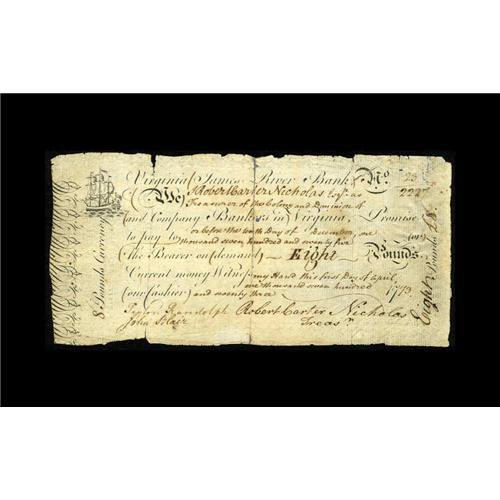 Virginia (James River Bank) No. 23
We Robert Carter Nicholas Esqr. as 222
Treasurer of the Colony and Dominion of
and Company Bankers in Virginia, Promise
to pay to or before the tenth Day of December one (or
thousand seven hundred and seventy five
the Bearer on demand) Eight Pounds
Current money Witness my Hand this first Day of April
one thousand seven hundred
(our Cashier) and seventy three 1773
Peyton Randolph Robert Carter Nicholas
John Blair Treasr.
8 Pounds Currency
Eight Pounds